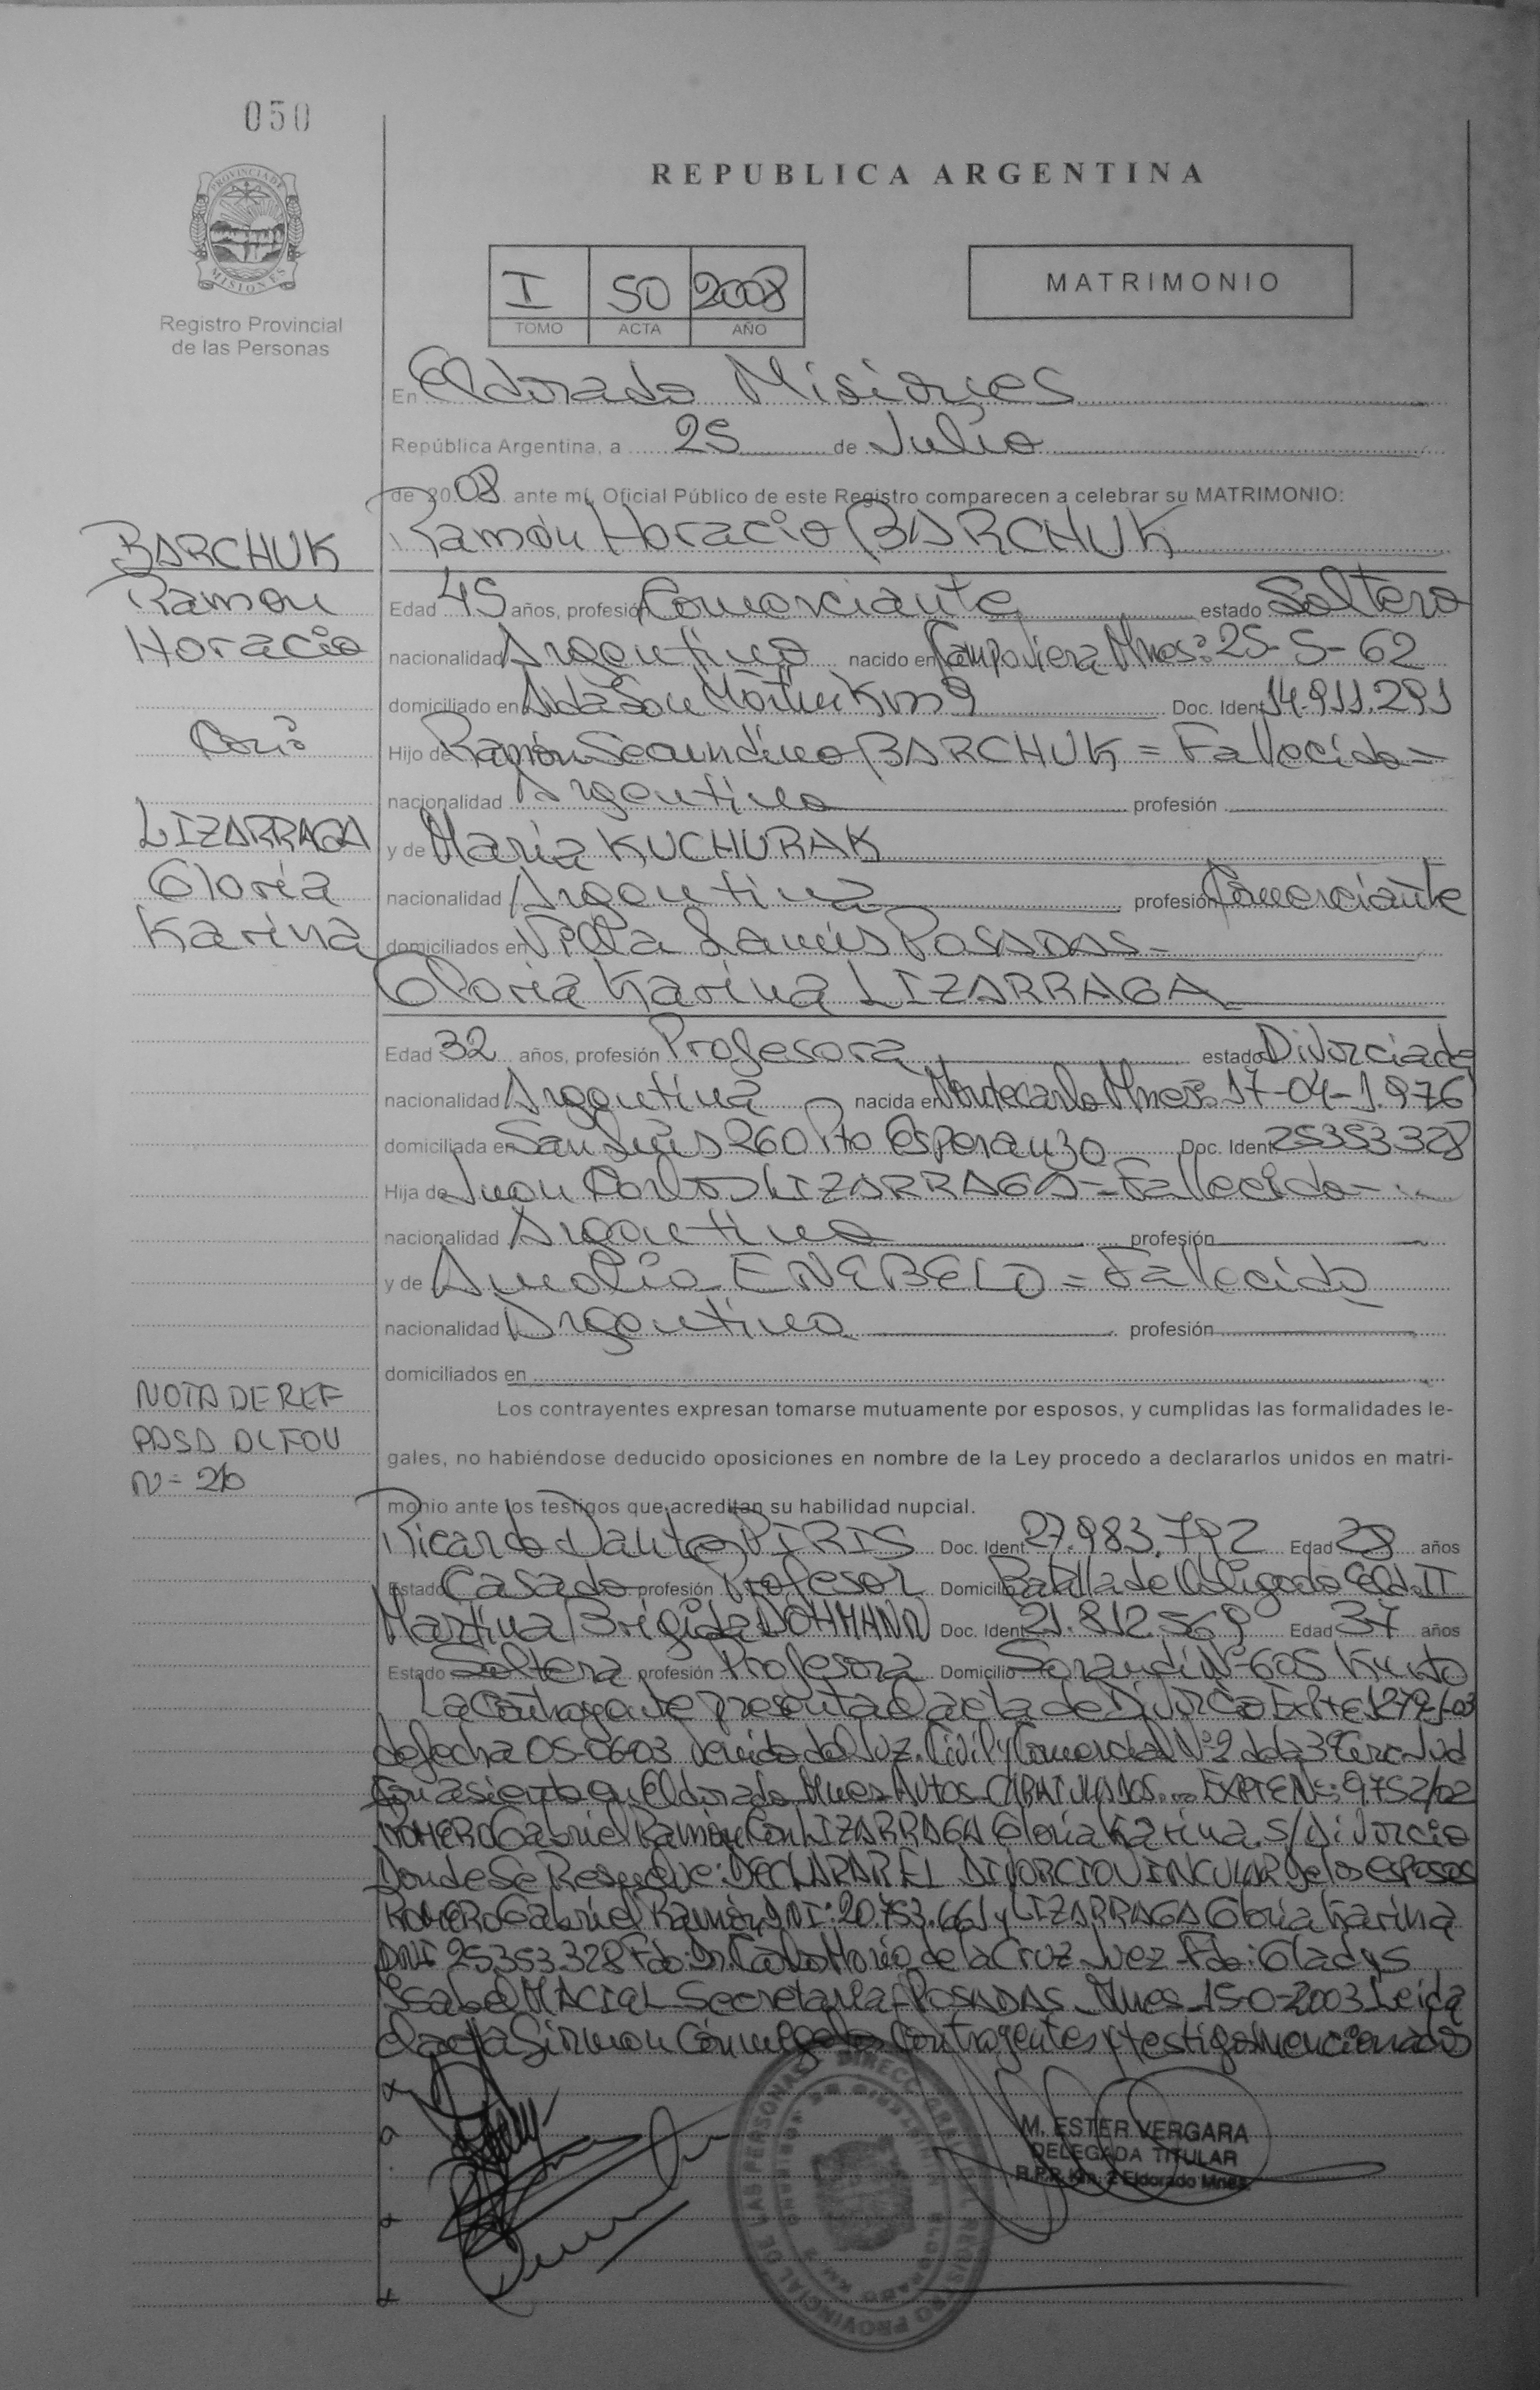 050
PROVINCIA DE
MISIONES
Registro Provincial
de las Personas
REPUBLICA ARGENTINA
I 50 2008
TOMO ACTA AÑO
MATRIMONIO
En Eldorado Misiones
República Argentina, a 25 de Julio
de 2008 ante mí, Oficial Público de este Registro comparecen a celebrar su MATRIMONIO:
BARCHUK
Ramon
Horacio
Con
LIZARRAGA
Gloria
Karina
NOTA DE REF
PASA AL FOU
N= 26
Ramón Horacio BARCHUK
Edad 45 años, profesión Comerciante estado Soltero
nacionalidad Argentino nacido en Campo Viera Mnes: 25-5-62
domiciliado en Avda San Martin Km 9 Doc. Ident 14.911.291
Hijo de Ramón Secundino BARCHUK = Fallecido =
nacionalidad Argentino profesión
y de María KUCHURAK
nacionalidad Argentina profesión Comerciante
domiciliados en Villa Lanús POSADAS-
Gloria Karina LIZARRAGA
Edad 32 años, profesión Profesora estado Divorciada
nacionalidad Argentina nacida en Montecarlo Mnes: 17-04-1.976
domiciliada en San Luis 260 Pto Esperanza Doc. Ident 25353328
Hija de Juan Carlos LIZARRAGA = Fallecido -
nacionalidad Argentino profesión
y de Amalia ENEBELO = Fallecida
nacionalidad Argentina profesión
domiciliados en
Los contrayentes expresan tomarse mutuamente por esposos, y cumplidas las formalidades le-
gales, no habiéndose deducido oposiciones en nombre de la Ley procedo a declararlos unidos en matri-
monio ante los testigos que acreditan su habilidad nupcial.
Ricardo Dante PIRIS Doc. Ident. 27.983.792 Edad 28 años
Estado Casado profesión Profesor Domicilio Batalla de Obligado Eldo II
Martina Brígida DOHMANN Doc. Ident 21.812.569 Edad 37 años
Estado Soltera profesión Profesora Domicilio Sarandí Nº 605
La Contrayente presenta el acta de Divorcio EXPTE
de fecha 05-06-03 venida del Juz. Civil y Comercial Nº 2 de la 3º Circ. Jud
con asiento en Eldorado Mnes Autos CARATULADOS... EXPTE Nº: 9752/02
ROMERO Gabriel Ramón Con LIZARRAGA Gloria Karina. S/ Divorcio
Donde Se Resuelve: DECLARAR EL DIVORCIO VINCULAR de los esposos
ROMERO Gabriel Ramón DNI: 20.753.661 y LIZARRAGA Gloria Karina
DNI 25353.328 Fdo: Dr. Carlos Mario de la Cruz Juez - Fdo: Gladys
Isabel MACIAL - Secretaria - POSADAS Mnes 2003 Leida
el acta firman conmigo los Contrayentes y testigos mencionados
M. ESTER VERGARA
DELEGADA TITULAR
R.P.P. Km. 2 Eldorado Mnes.